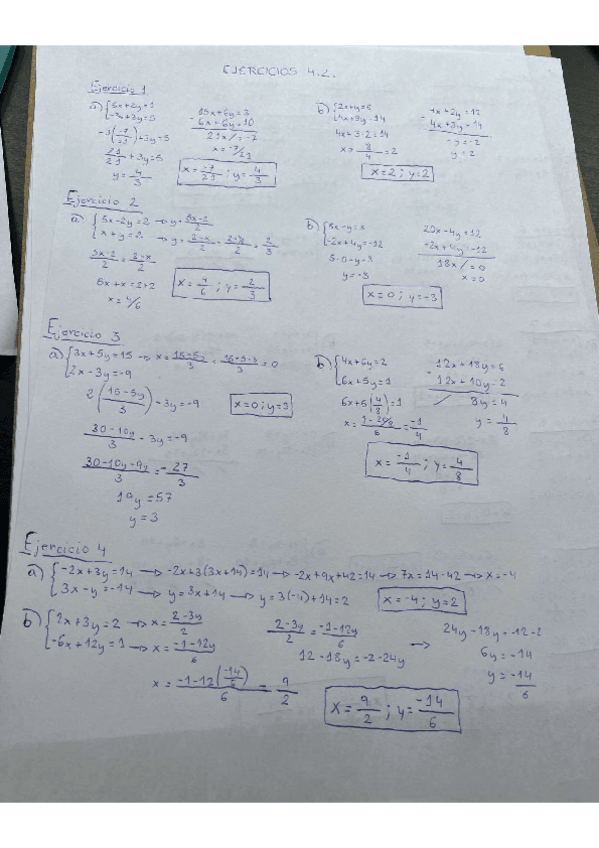 EJERCICIOS 4.2.
Ejercicio 1
a) {5x+2y=1
-3x+3y=5
-3(-7/21)+3y=5
21/21+3y=5
y=4/3
15x+6y=3
- 6x+6y=10
21x/=-7
x=-7/21
x=-7/21; y=4/3
b) {2x+y=6
4x+3y=14
4x+3·2=14
x=8/4=2
4x+2y=12
- 4x+3y=14
-y=-2
y=2
x=2; y=2
Ejercicio 2
a) {3x-2y=2 → y=3x-2/2
x+y=2
3x-2/2=2-x/2
x=4/6
x=4/6; y=2/3
b) {5x-y=3
-2x+4y=-12
5·0-y=3
y=-3
20x-4y=12
-2x+4y=-12
18x/=0
x=0
x=0; y=-3
Ejercicio 3
a) {3x+5y=15 → x=15-5y/3=15-5·3/3=0
2x-3y=-9
2(15-5y/3)-3y=-9
x=0; y=3
30-10y/3-3y=-9
30-10y-9y/3=-27/3
19y=57
y=3
b) {4x+6y=2
6x+5y=1
6x+5(4/8)=1
x=1-20/8/6=-1/4
12x+18y=6
- 12x+10y=2
8y=4
y=4/8
x=-1/4; y=4/8
Ejercicio 4
a) {-2x+3y=14 → -2x+3(3x+14)=14 → -2x+9x+42=14 → 7x=14-42 → x=-4
3x-y=-14 → y=3x+14 → y=3(-4)+14=2
x=-4; y=2
b) {2x+3y=2 → x=2-3y/2
-6x+12y=1 → x=-1-12y/6
2-3y/2=-1-12y/6
12-18y=-2-24y →
24y-18y=-12-2
6y=-14
y=-14/6
x=-1-12(-14/6)/6=9/2
x=9/2; y=-14/6